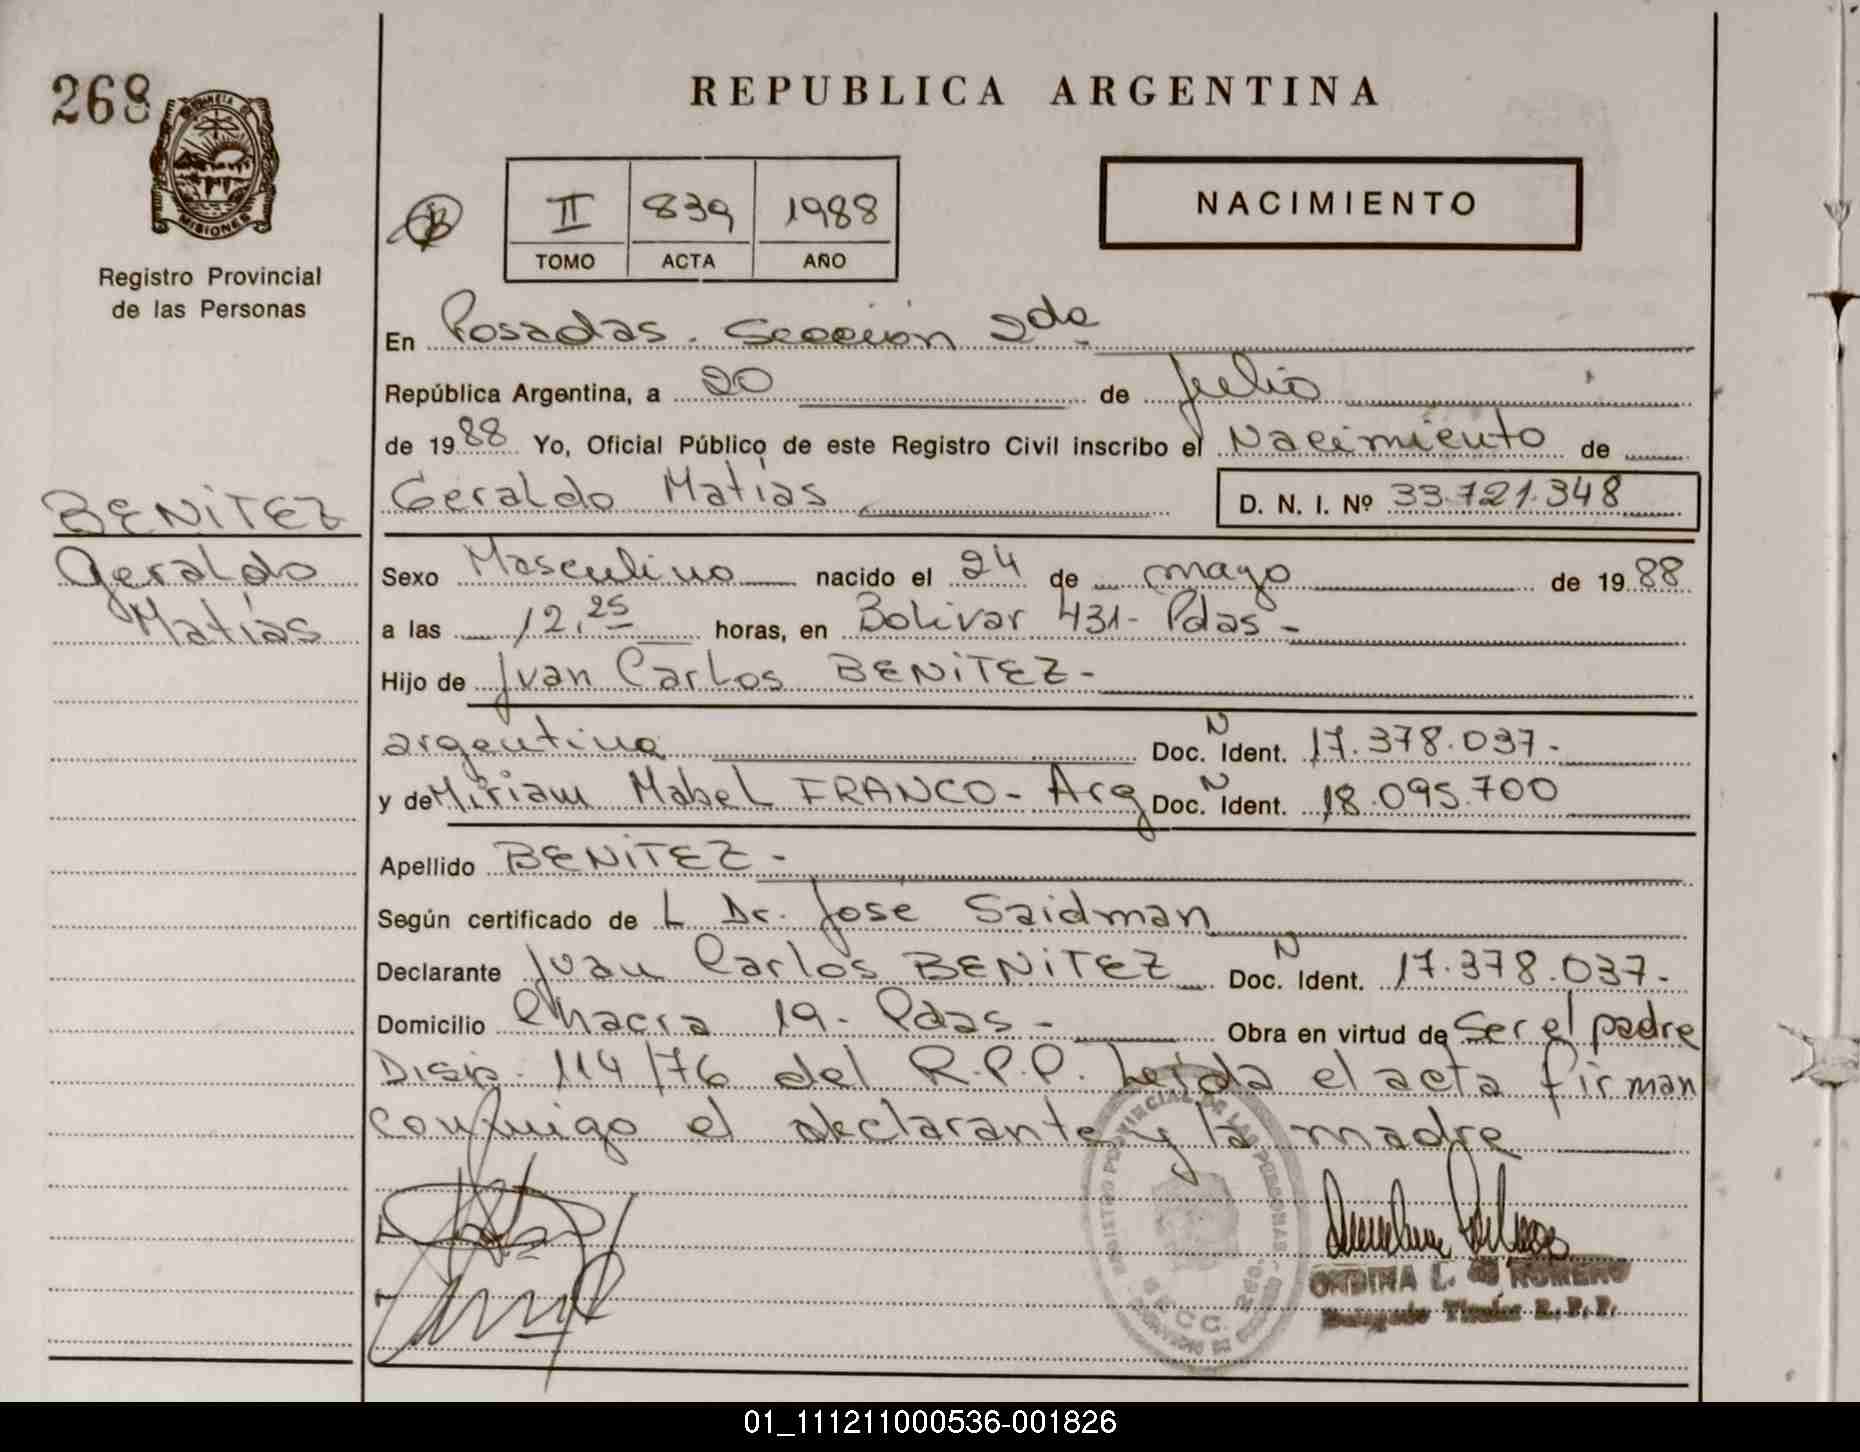 268
MISIONES
Registro Provincial
de las Personas
REPUBLICA ARGENTINA
NACIMIENTO
II 839 1988
TOMO ACTA AÑO
En Posadas. Sección 2da
República Argentina, a 20 de Julio
de 1988 Yo, Oficial Público de este Registro Civil inscribo el Nacimiento de
Geraldo Matías D. N. I. Nº 33.721.348
BENiTEZ
Geraldo
Matías
Sexo Masculino nacido el 24 de mayo de 1988
a las 12,25 horas, en Bolivar 431- Pdas-
Hijo de Juan Carlos BENiTEZ-
argentino Doc. N Ident. 17.378.037-
y de Miriam Mabel FRANCO- Arg Doc. N Ident. 18.095.700
Apellido BENiTEZ-
Según certificado de L Dr. José Saidman
Declarante Juan Carlos BENiTEZ Doc. N Ident. 17.378.037-
Domicilio Chacra 19- Pdas- Obra en virtud de Ser el padre
Disp. 114/76 del R.P.P. Leída el acta firman
conmigo el declarante y la madre
REGISTRO PROVINCIAL DE LAS PERSONAS
SECC. 2da.
ONDINA L. de ROMERO
Delegado Titular R.P.P.
01_111211000536-001826